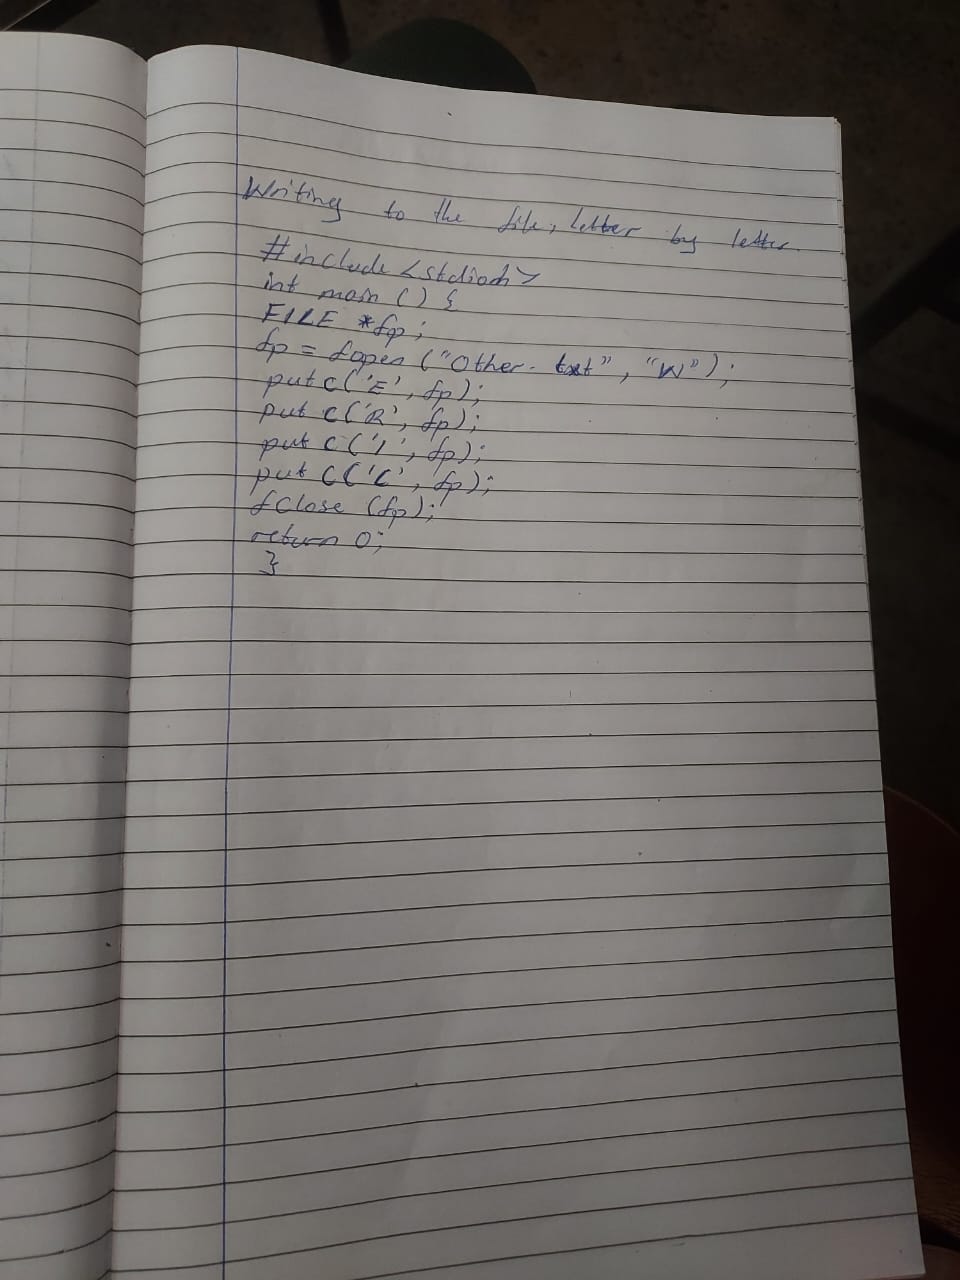 Writing to the file, letter by letter.
#include <stdioh>
int main () {
FILE *fp;
fp = fopen ("Other.txt", "W");
putc('E', fp);
put c('R', fp);
put c('I', fp);
put c('C', fp);
fClose (fp);
return 0;
}